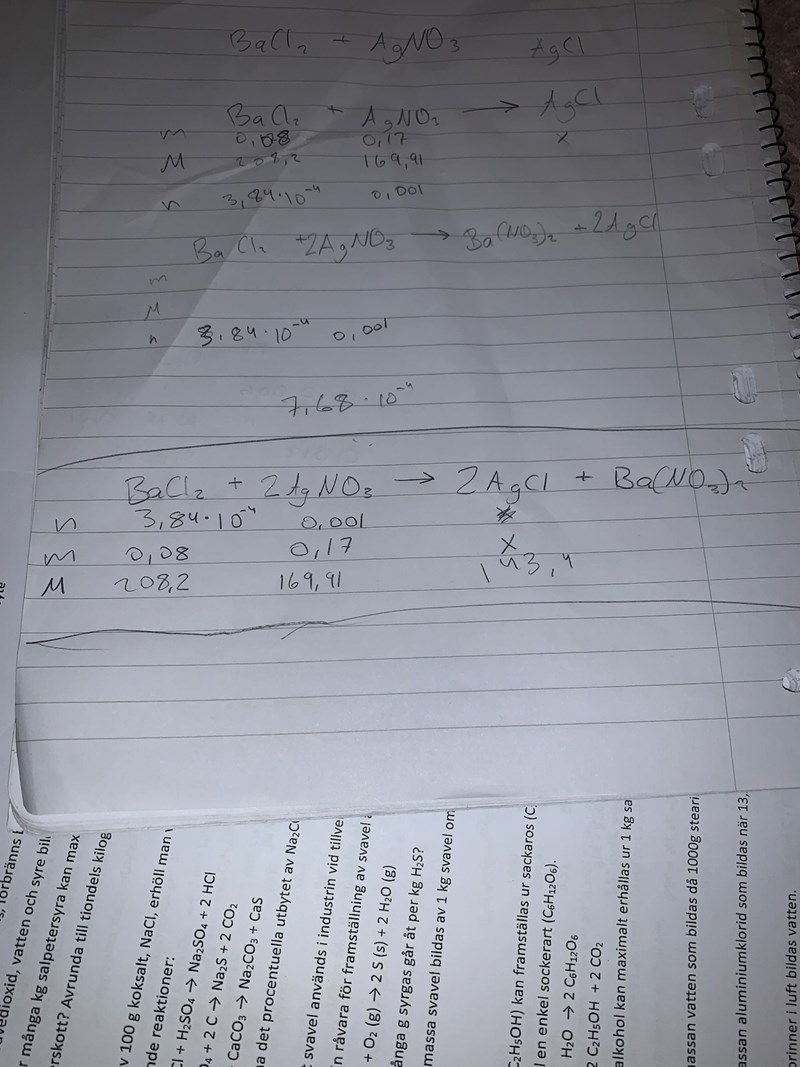 BaCl₂ + AgNO₃ AgCl
BaCl₂ + AgNO₃ → AgCl
m 0,08 0,17 x
M 208,2 169,91
n 3,84·10⁻⁴ 0,001
BaCl₂ +2AgNO₃ → Ba(NO₃)₂ +2AgCl
m
M
n 3,84·10⁻⁴ 0,001
7,68·10⁻⁴
BaCl₂ + 2AgNO₃ → 2AgCl + Ba(NO₃)₂
n 3,84·10⁻⁴ 0,001
m 0,08 0,17 x
M 208,2 169,91 143,4
förbränns
vedioxid, vatten och syre bil
r många kg salpetersyra kan max
rskott? Avrunda till tiondels kilog
v 100 g koksalt, NaCl, erhöll man
nde reaktioner:
Cl + H₂SO₄ → Na₂SO₄ + 2 HCl
O₄ + 2 C → Na₂S + 2 CO₂
CaCO₃ → Na₂CO₃ + CaS
a det procentuella utbytet av Na₂C
t svavel används i industrin vid tillve
n råvara för framställning av svavel
+ O₂ (g) → 2 S (s) + 2 H₂O (g)
ånga g syrgas går åt per kg H₂S?
massa svavel bildas av 1 kg svavel om
C₂H₅OH) kan framställas ur sackaros (C
l en enkel sockerart (C₆H₁₂O₆).
H₂O → 2 C₆H₁₂O₆
2 C₂H₅OH + 2 CO₂
alkohol kan maximalt erhållas ur 1 kg sa
assan vatten som bildas då 1000g steari
assan aluminiumklorid som bildas när 13,
brinner i luft bildas vatten.